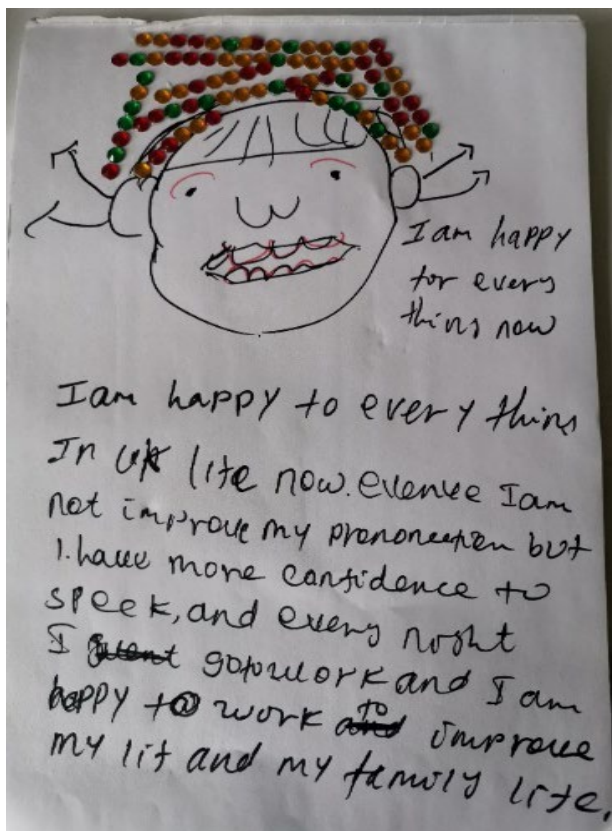 I am happy
for every
thing now
I am happy to every thing
In UK life now. evenve I am
not improve my prononcetion but
I. have more confidence to
speek, and every night
I went go to work and I am
happy to work and to improve
my lif and my family life.